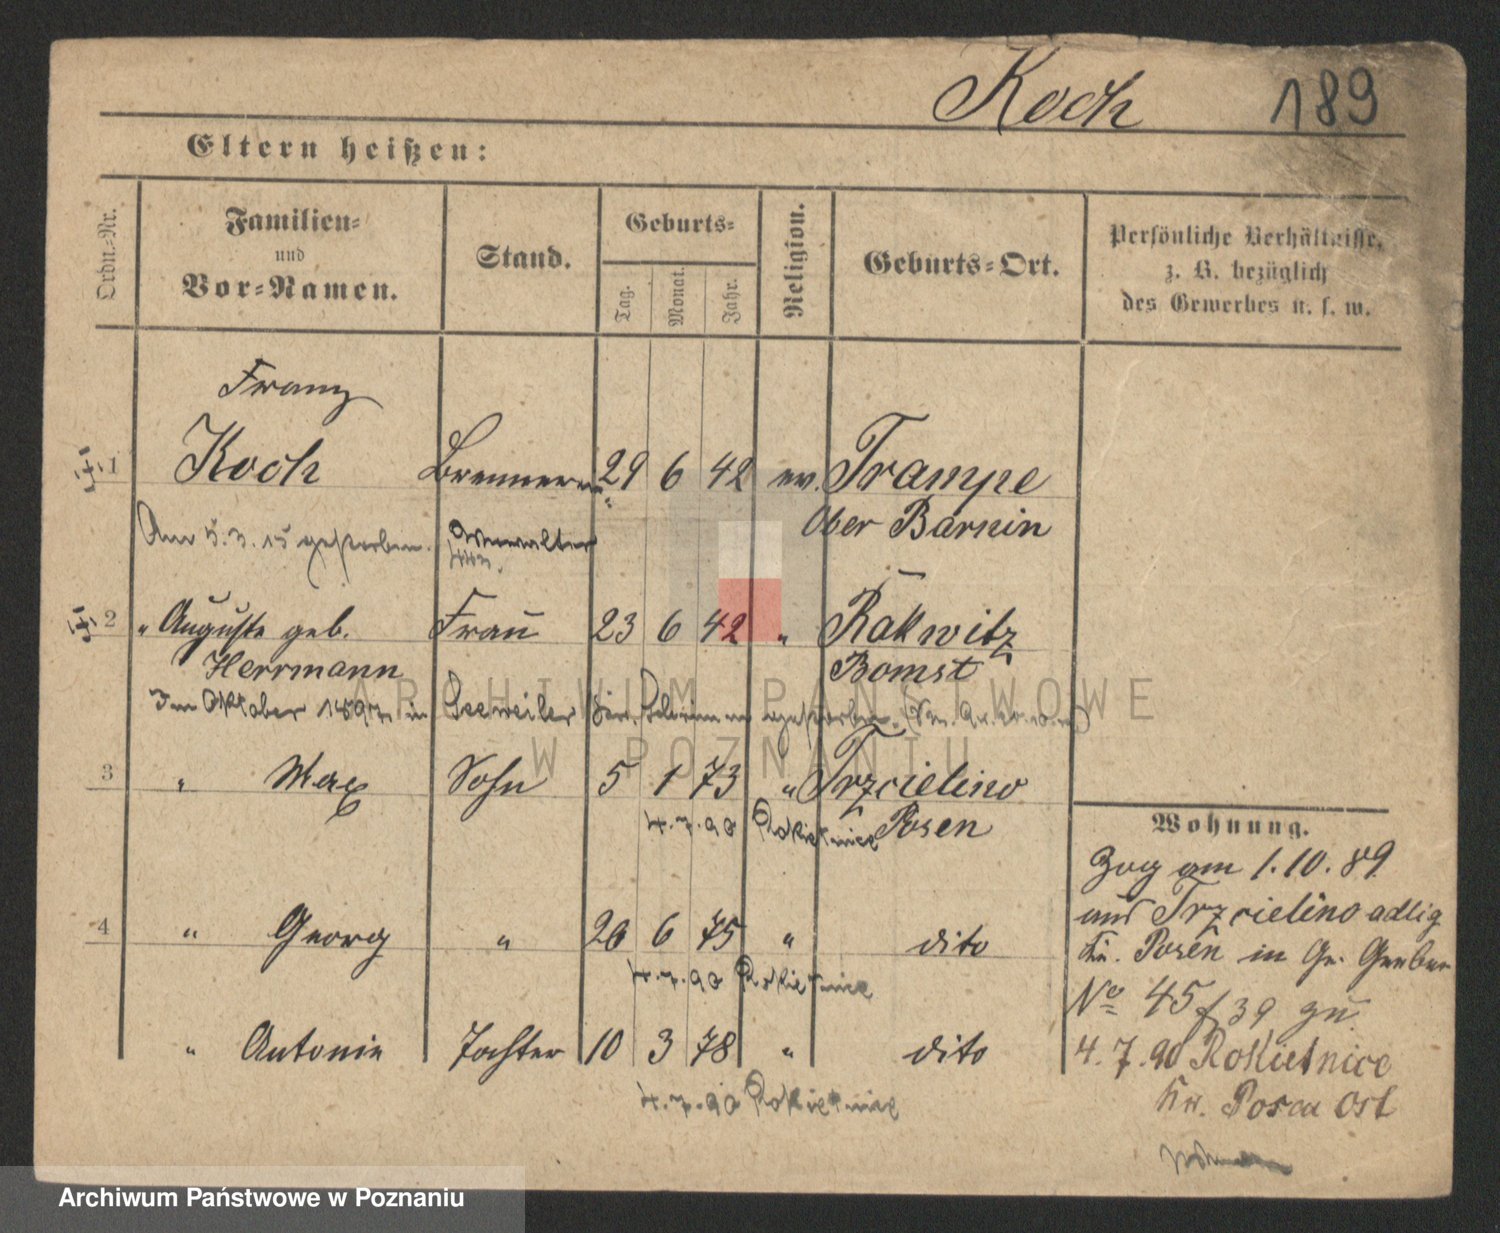 Koch 189
Eltern heißen:
Ordn.-Nr.
Familien-
und
Vor-Namen.
Stand.
Geburts-
Tag.
Monat.
Jahr.
Religion.
Geburts-Ort.
Persönliche Verhältnisse,
z. B. bezüglich
des Gewerbes u. s. w.
Franz
1 Koch 29 6 42 ev. Trampe
Ober Barnin
Am 5.3.15 gestorben. Verwalter
2 " Auguste geb. Frau 23 6 42 " Rakwitz
Herrmann Bomst
Im Oktober 1897 in gestorben.
3 " Max Sohn 5 1 73 " Trzcielino
4.7.90 Rokietnice Posen
4 " Georg " 26 6 75 " dito
4.7.90 Rokietnice
" Antonie Tochter 10 3 78 " dito
4.7.90 Rokietnice
Wohnung.
Zog am 1.10.89
aus Trzcielino adlig
Kr. Posen in Gr. Gerber
No 45/39 zu
4.7.90 Rokietnice
Kr. Posen Ost
ARCHIWUM PAŃSTWOWE
W POZNANIU
Archiwum Państwowe w Poznaniu